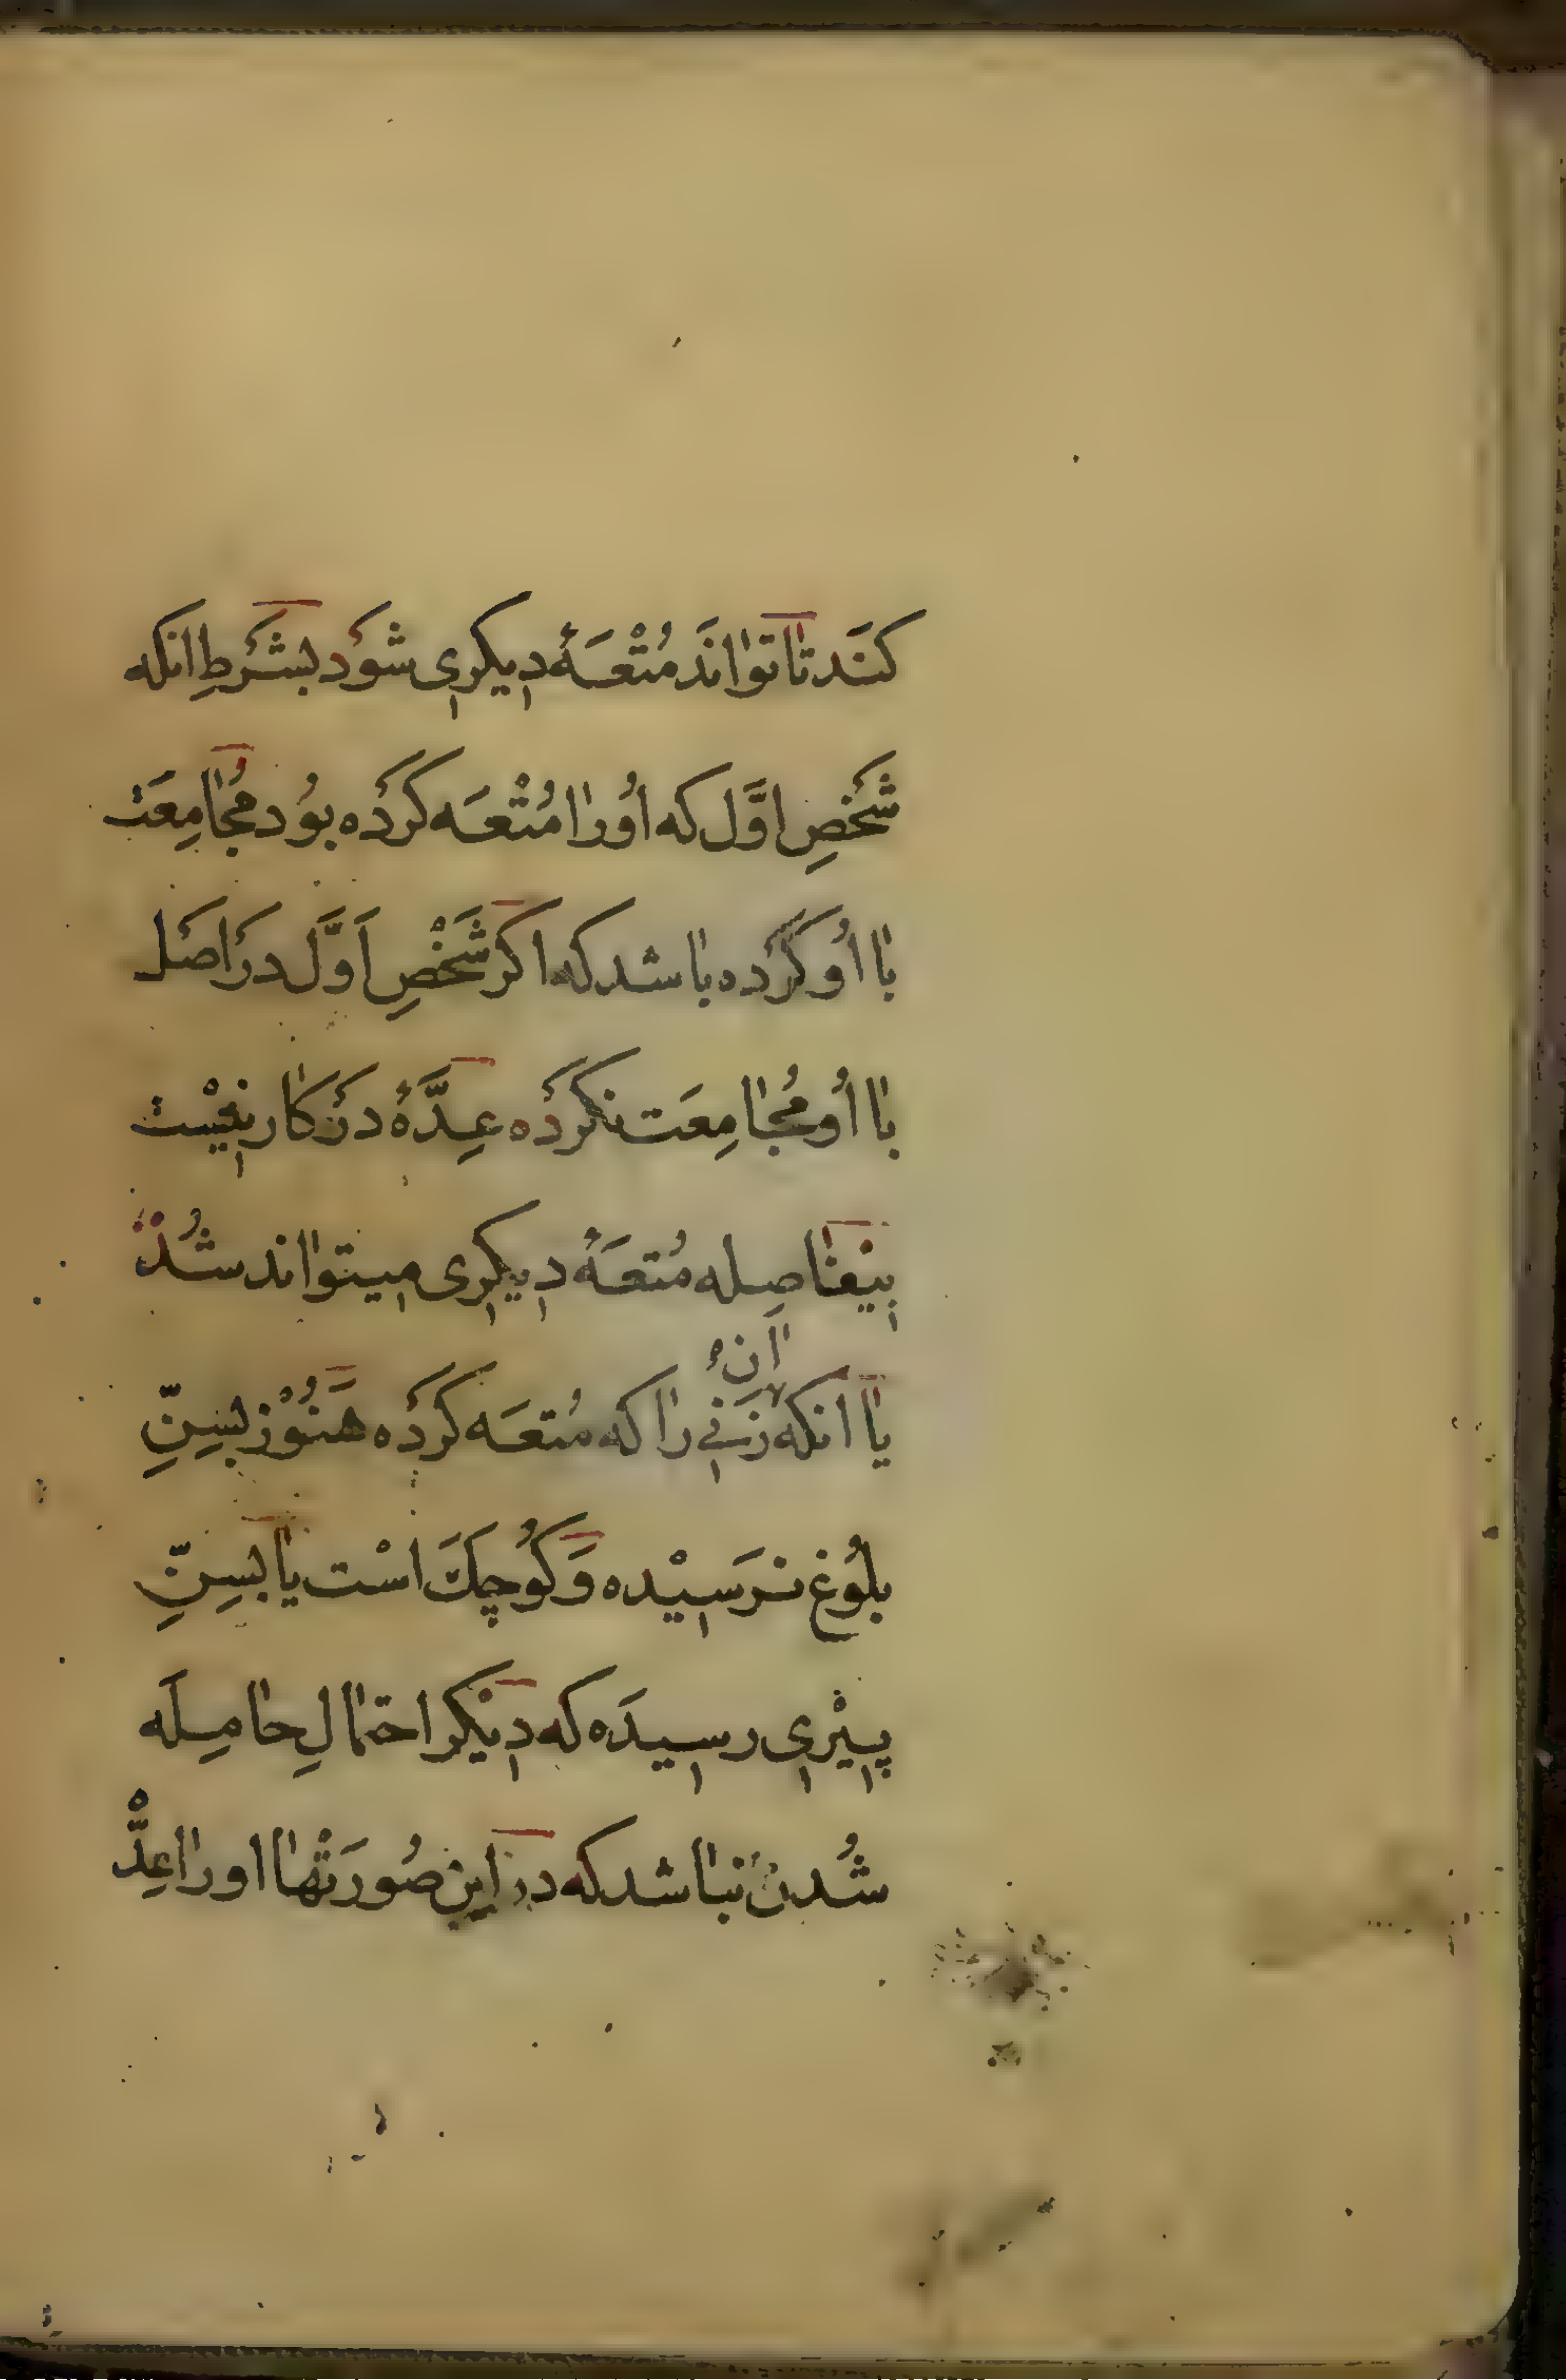 کنَد تا تواند مُتْعَهٔ دیکری شوَد بشَرطِ انکه
شَخصِ اوَّل که اُورا مُتْعَه کرده بوُد مُجامِعَت
با اُو کرده باشد که اکر شَخْصِ اَوَّل در اصل
با اُو مُجامِعَت نکرده عِدَّهٔ در کار نیْست
بیْفاصِله مُتعَهٔ دیکری میتواند شُدْ
یا انکه آن زَنی را که مُتعَه کرده هَنُوْز بسِنِّ
بلُوغ نرَسیْده وَ کُوچکَ اسْت یا بسِنِّ
پیْری رسیدَه که دیْکر احتمالِ حامِلَه
شُدن نباشد که در این صُورَتْها اورا عِدّ